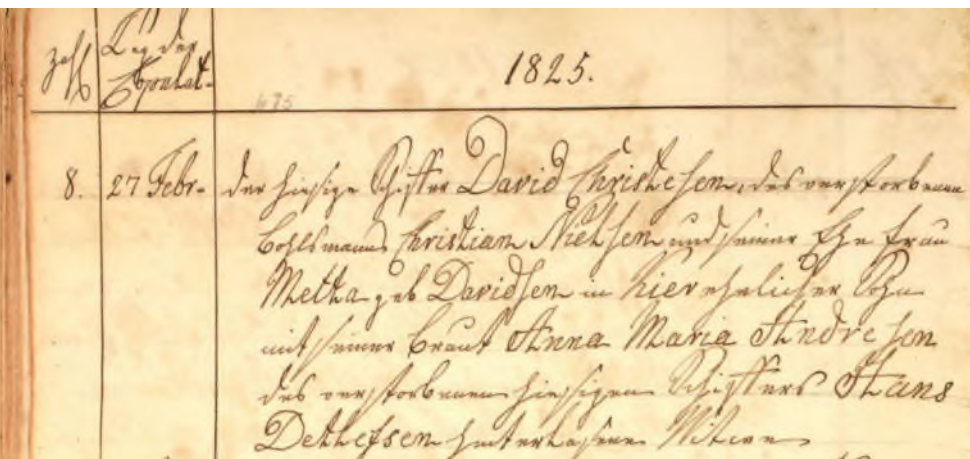 Zahl
Tag der
Copulat-
1825.
475
8.
27 Febr-
der hiesige Schiffer David Christesen, des verstorbenen
Bohlsmanns Christian Nielsen und seiner Ehefrau
Metta geb Davidsen in Kier ehelicher Sohn
mit seiner Braut Anna Maria Andresen
des verstorbenen hiesigen Schiffers Hans
Dethlefsen hinterlassene Witwe